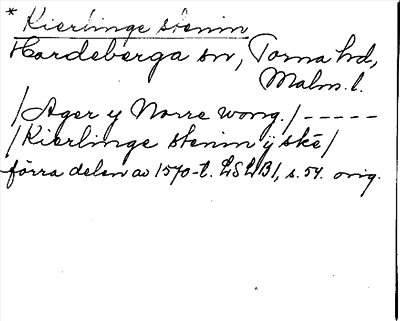 * Kierlinge stenin
Hardeberga sn, Torna hd,
Malm. l.
/Ager y Norre wong./ -----
/Kierlinge stenin y ske/
förra delen av 1570-t. LSLB1, s. 54. orig.